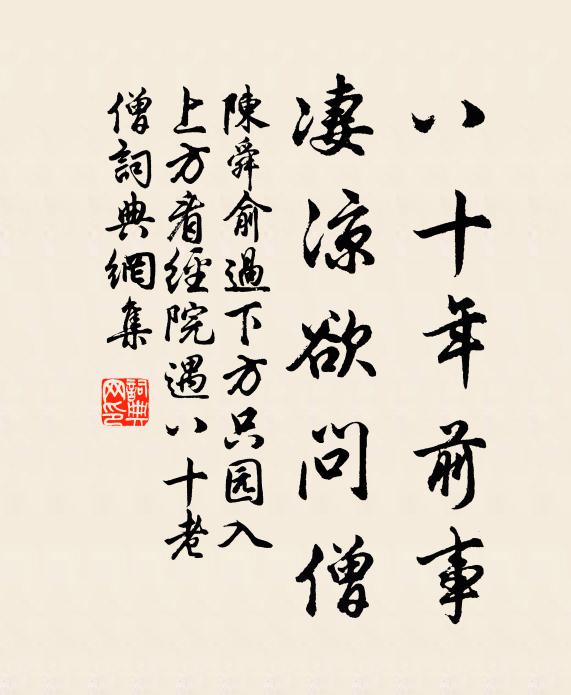 八十年前事
凄涼欲問僧
陳舜俞過下方只园入
上方看經院遇八十老
僧詞典網集
詞典
网印